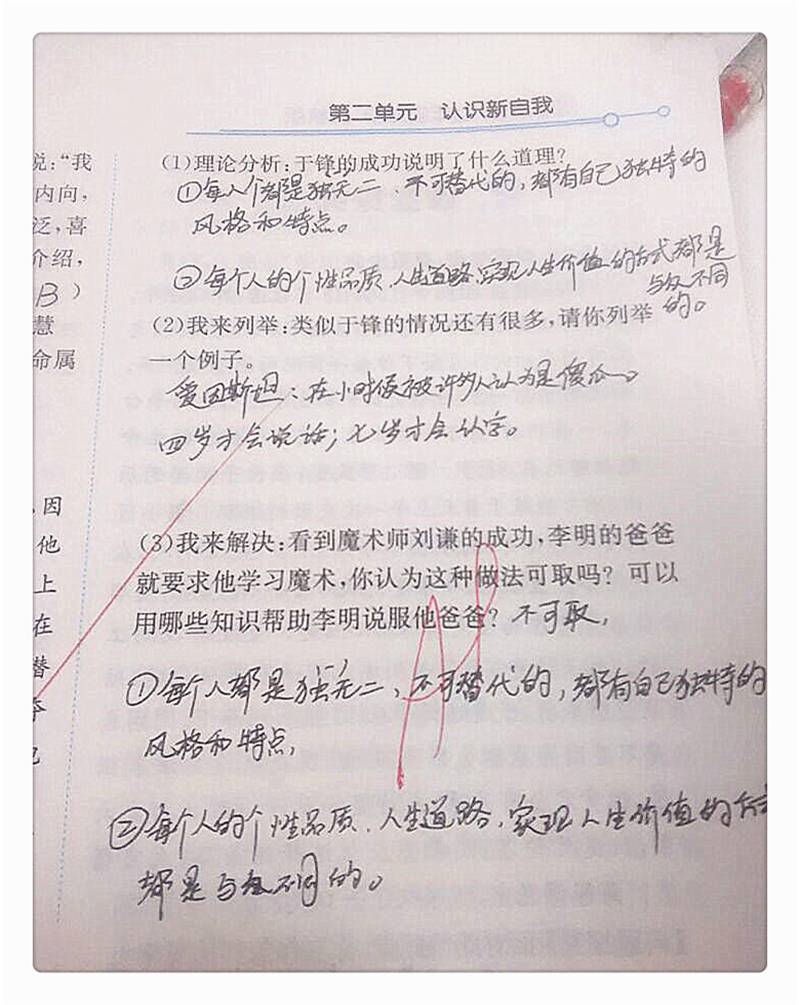 第二单元 认识新自我
说:“我
内向,
泛,喜
介绍,
B)
慧
命属
因
他
上
在
潜
(1)理论分析:于锋的成功说明了什么道理?
①每人个都是独无二、不可替代的,都有自己独特的
风格和特点。
②每个人的个性品质、人生道路、实现人生价值的方式都是
与众不同
的。
(2)我来列举:类似于锋的情况还有很多,请你列举
一个例子。
爱因斯坦:在小时候被许多人认为是傻瓜。
四岁才会说话;七岁才会认字。
(3)我来解决:看到魔术师刘谦的成功,李明的爸爸
就要求他学习魔术,你认为这种做法可取吗?可以
用哪些知识帮助李明说服他爸爸?不可取,
①每个人都是独无二、不可替代的,都有自己独特的
风格和特点,
②每个人的个性品质、人生道路,实现人生价值的方式
都是与众不同的。